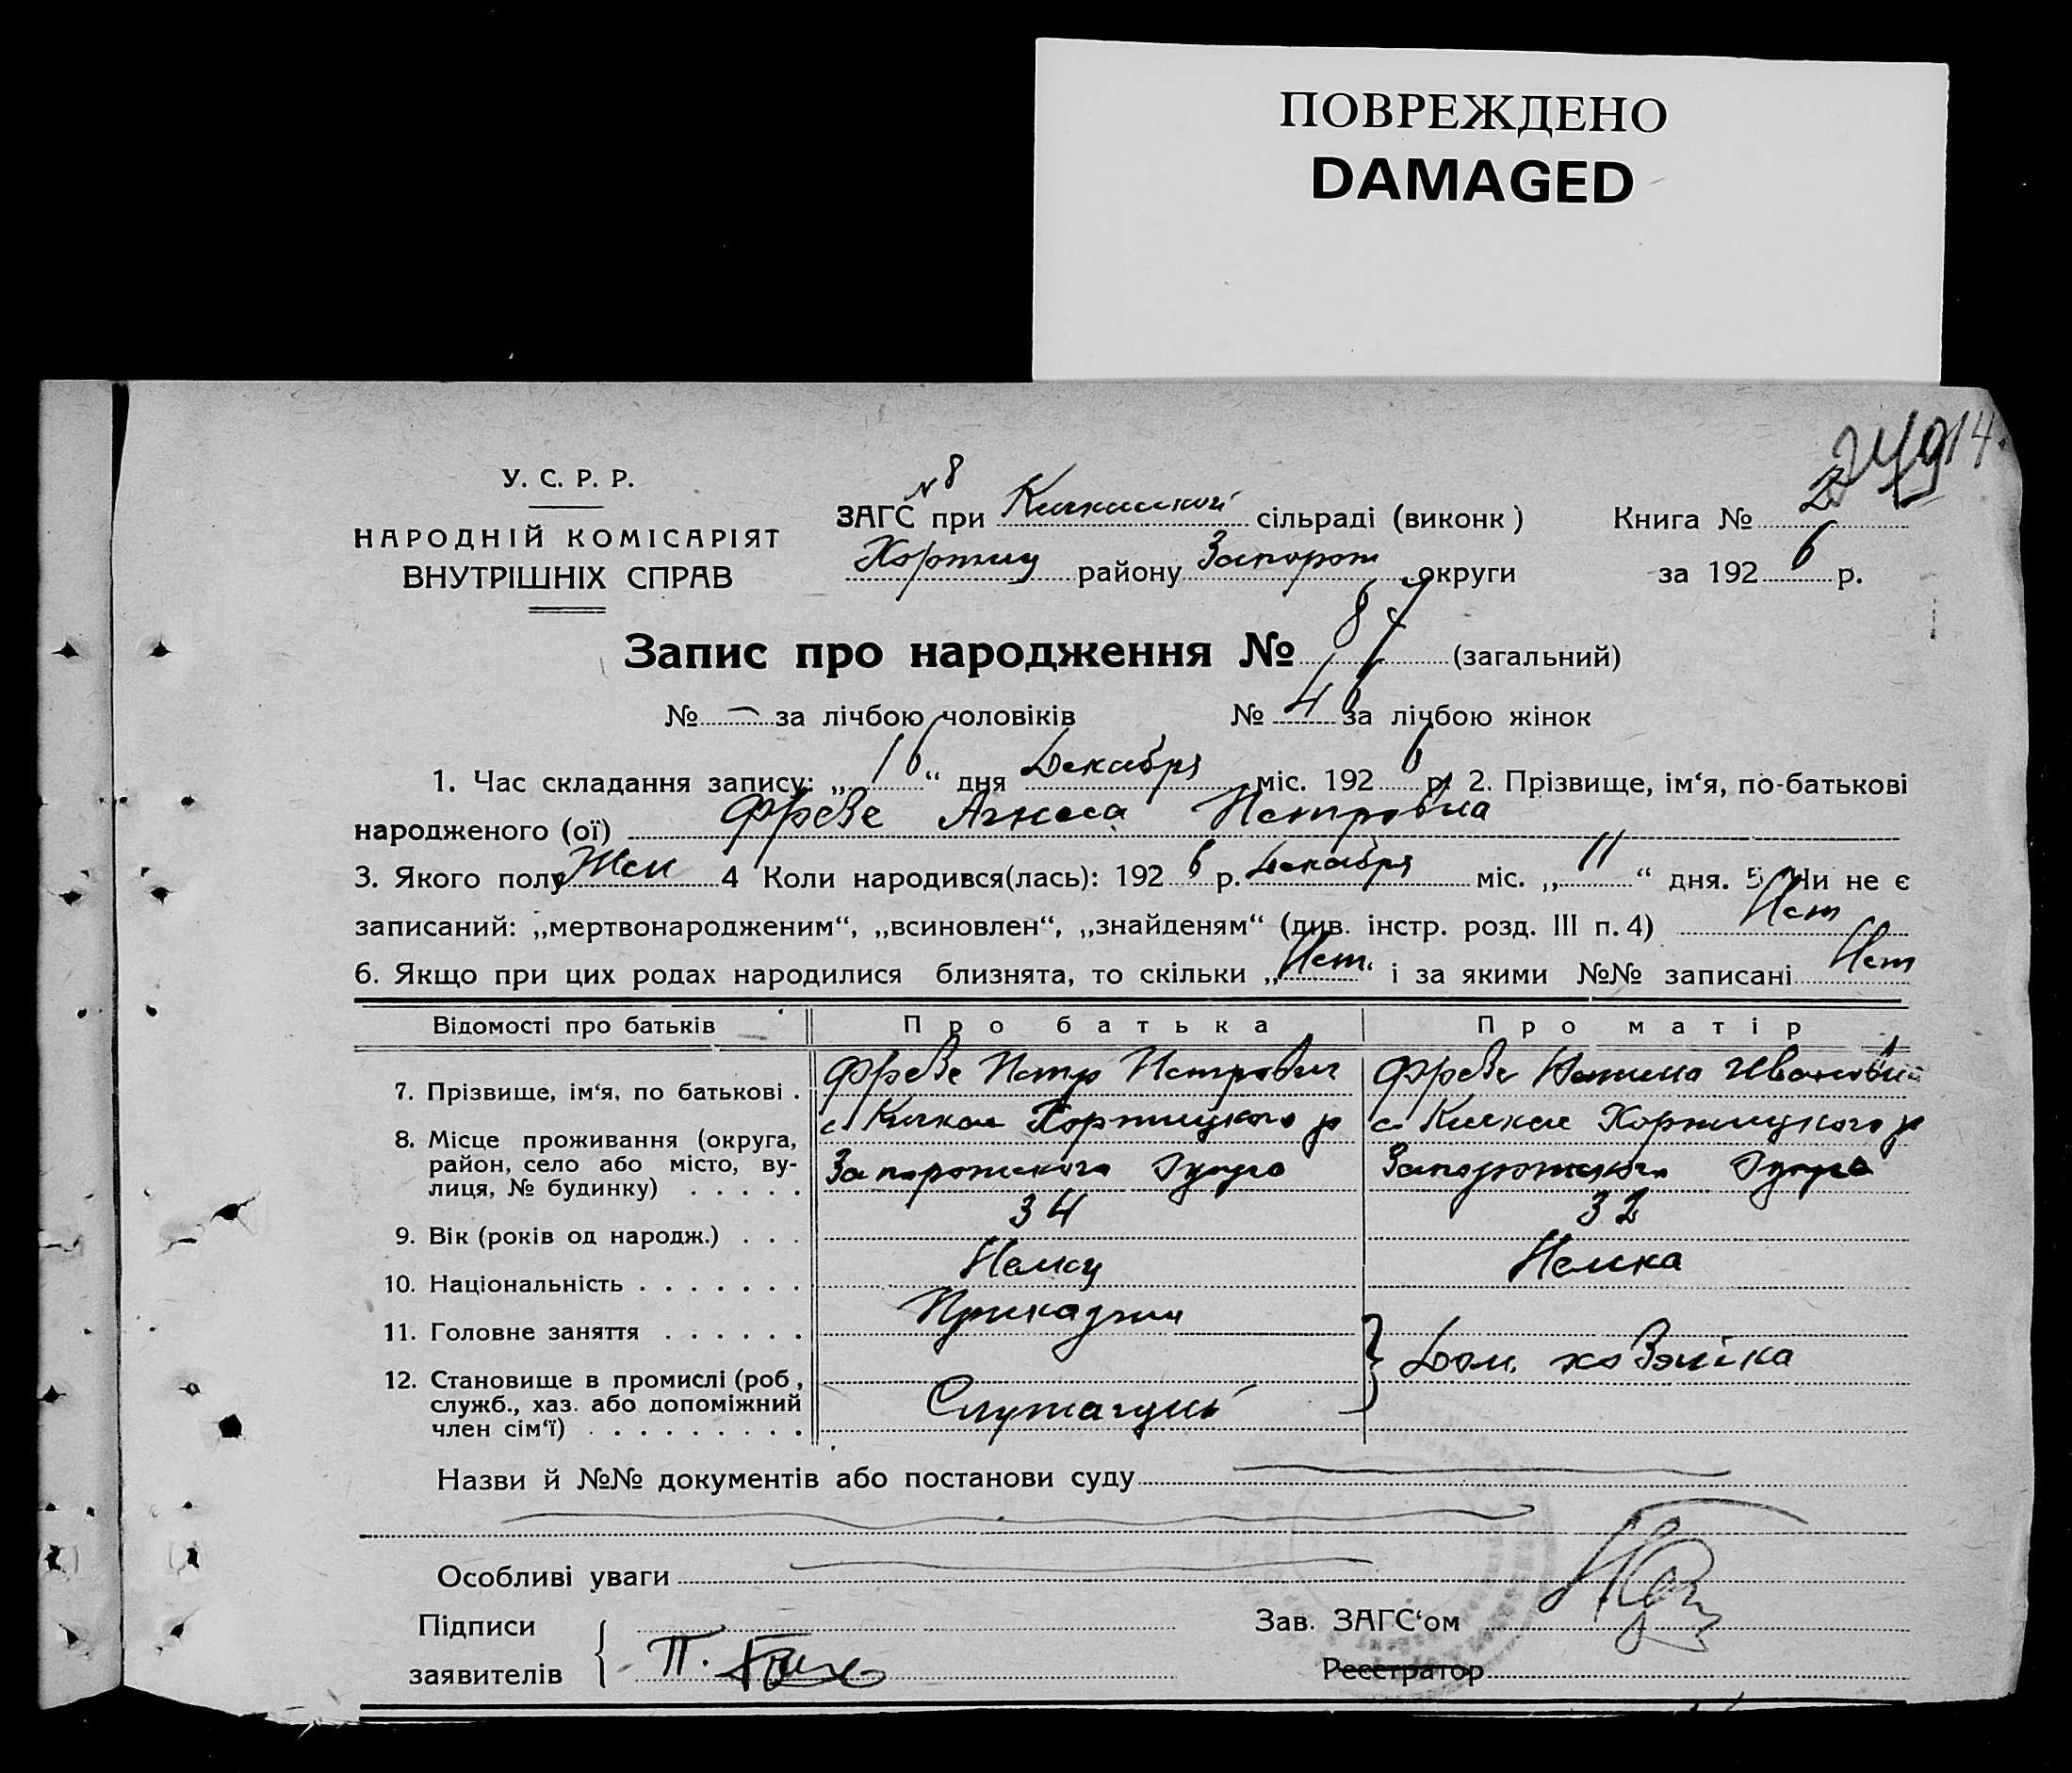 ПОВРЕЖДЕНО
DAMAGED
У. С. Р. Р.
НАРОДНІЙ КОМІСАРІЯТ
ВНУТРІШНІХ СПРАВ
N 8
ЗАГС при Кичкасской сільраді (виконк) Книга № 2
Хортиц району Запорож округи за 192 6 р.
Запис про народження № 87 (загальний)
№ — за лічбою чоловіків № 46 за лічбою жінок
1. Час складання запису: „16“ дня Декабря міс. 192 6 р. 2. Прізвище, ім‘я, по-батькові
народженого (ої) Фрезе Агнеса Петровна
3. Якого полу Жен 4 Коли народився(лась): 192 6 р. Декабря міс. „11“ дня. 5 Чи не є
записаний: „мертвонародженим“, „всиновлен“, „знайденям“ (див. інстр. розд. III п. 4) Нет
6. Якщо при цих родах народилися близнята, то скільки „Нет“ і за якими №№ записані Нет
Відомості про батьків Про батька Про матір
7. Прізвище, ім‘я, по батькові . Фрезе Петр Петрович Фрезе Ивановна
8. Місце проживання (округа, с Кичкас Хортицкого р с Кичкас Хортицкого р
район, село або місто, ву- Запорожского Округа Запорожского Округа
лиця, № будинку) . . . . .
9. Вік (років од народж.) . . . 34 32
10. Національність . . . . . . . Немец Немка
11. Головне заняття . . . . . . Приказчик
Дом. хозяйка
12. Становище в промислі (роб,
служб., хаз. або допоміжний Служащий
член сім‘ї) . . . . . . . . .
Назви й №№ документів або постанови суду
Особливі уваги
Підписи Зав. ЗАГС‘ом
заявителів П. Реєстратор